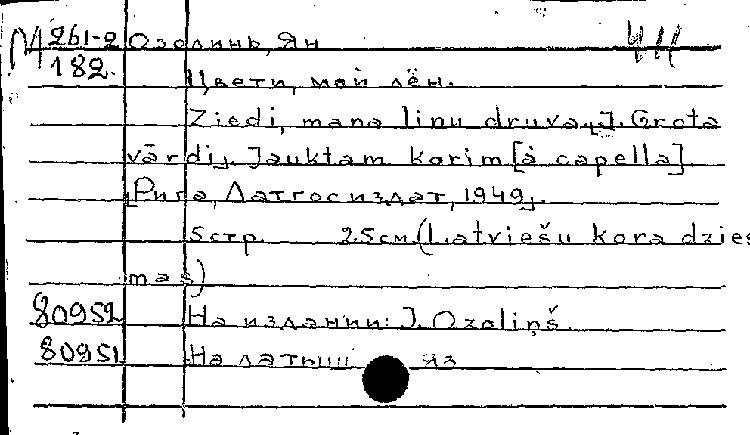 М 261-2 Озолинь, Ян
182.
Цвети, мой лён.
Ziedi, mana linu druva, J. Grota
vārdi. Jauktam korim [à capella]
[Рига, Латгосиздат, 1949].
5 стр. 25 см. (Latviešu kora dzies
mas)
80952 На издании: J. Ozoliņš.
80951 На латыш яз